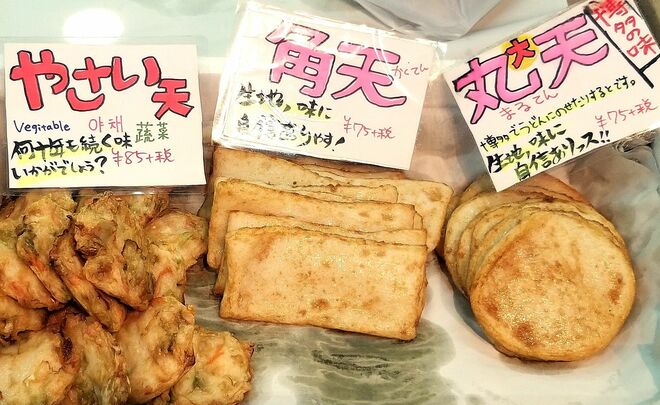 やさい天
Vegitable 야채 蔬菜
何十年も続く味
いかがでしょう? ¥85+税
角天 かくてん
生地、味に
自信ありやす! ¥75+税
博多の味
丸大天
まるてん
博多でうどんにのせたりするとです。
生地、味に ¥75+税
自信ありッス!!